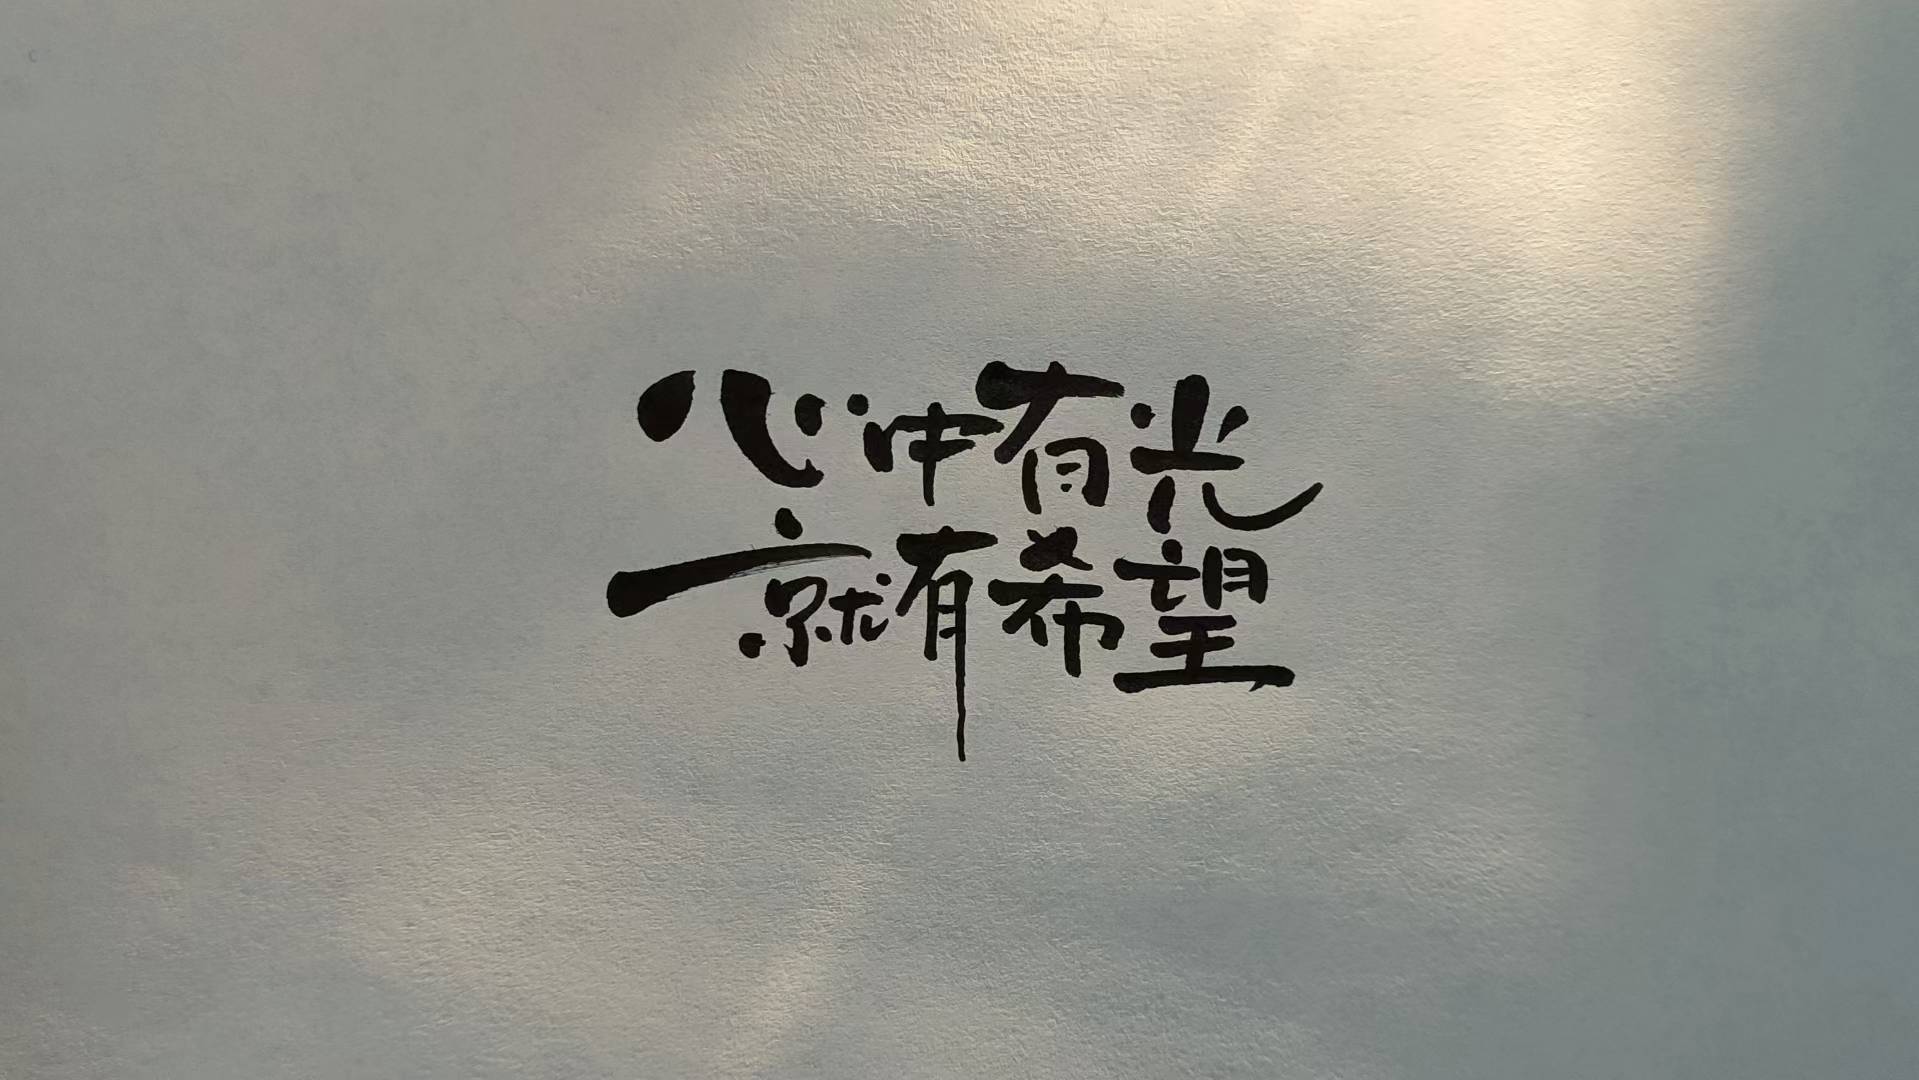 心中有光
就有希望